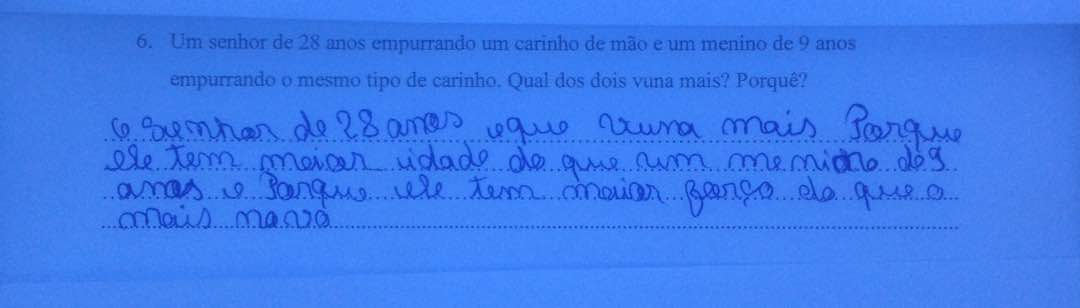 6. Um senhor de 28 anos empurrando um carinho de mão e um menino de 9 anos
empurrando o mesmo tipo de carinho. Qual dos dois vuna mais? Porquê?
O Senhor de 28 anos eque vuna mais Porque
ele tem maior idade do que um menino de 9
anos e Porque ele tem maior força do que o
mais novo